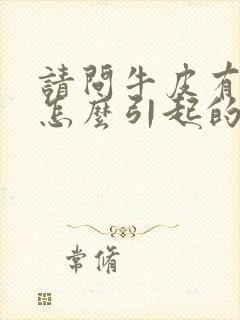 請問牛皮有
怎麼引起的
常脩